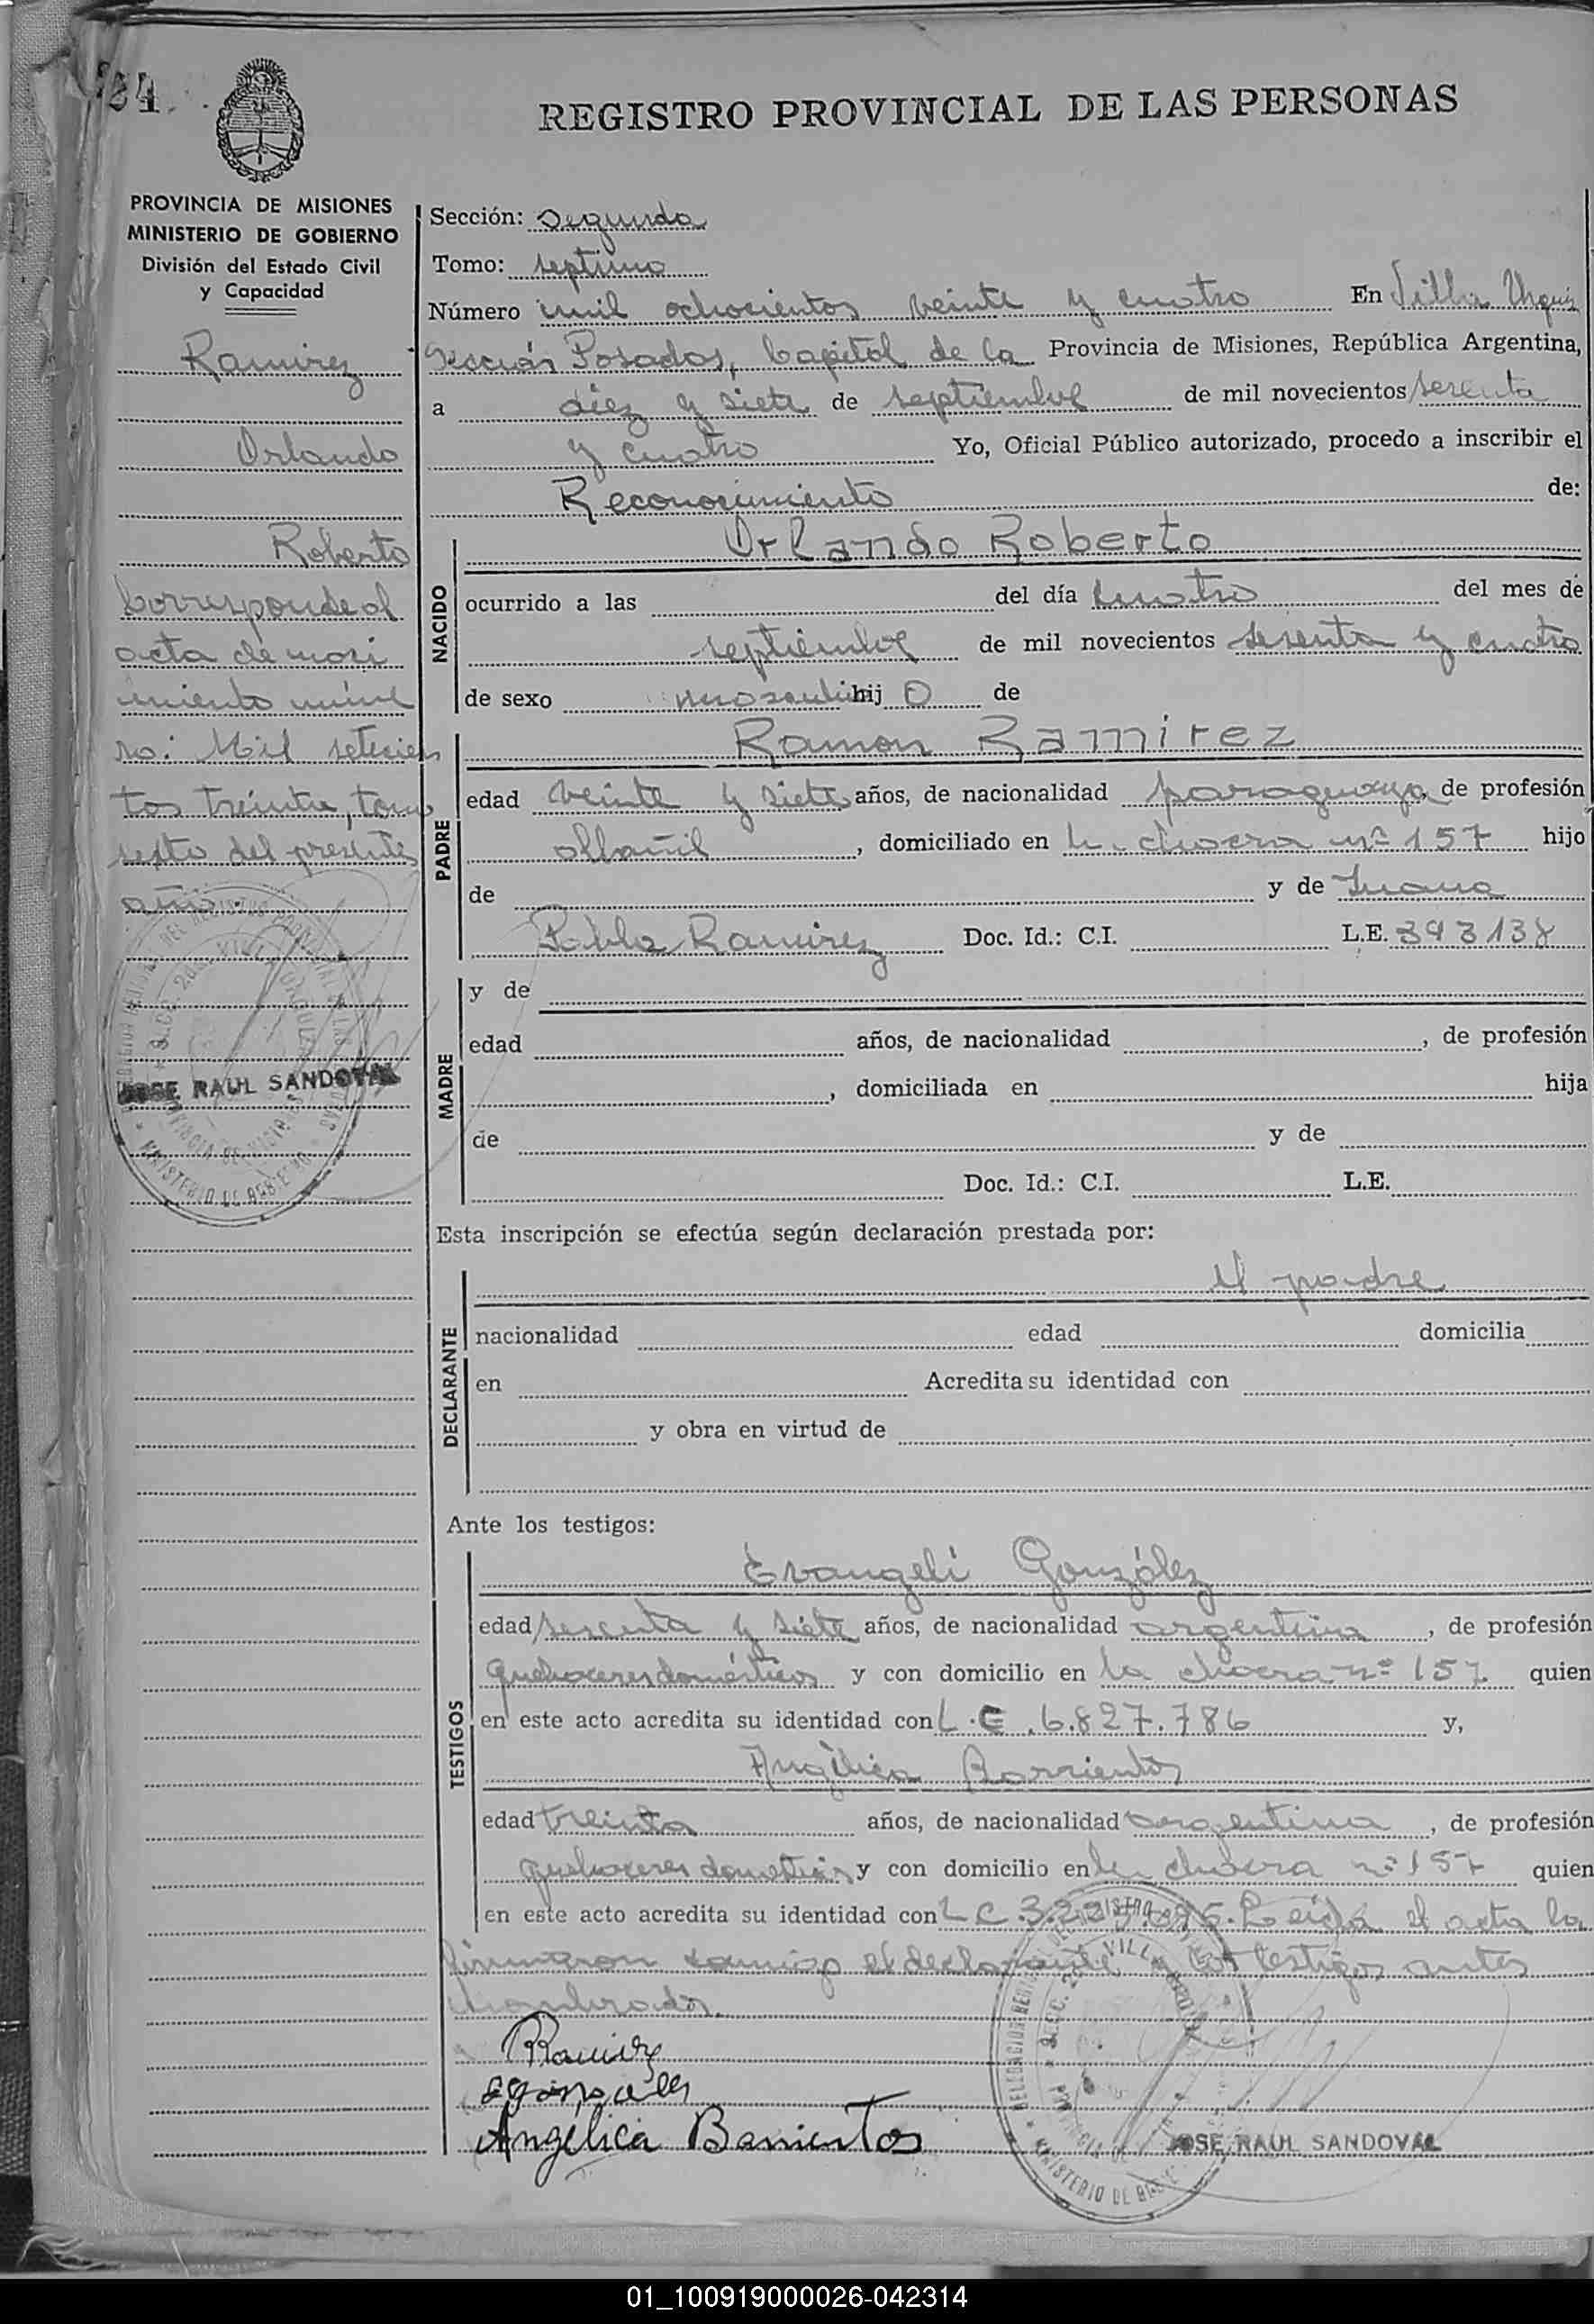 84
REGISTRO PROVINCIAL DE LAS PERSONAS
PROVINCIA DE MISIONES
MINISTERIO DE GOBIERNO
División del Estado Civil
y Capacidad
Ramirez
Orlando
Roberto
Corresponde al
acta de naci
miento núme
ro: Mil setecien
tos treinta, tomo
sexto del presente
año.
JOSE RAUL SANDOVAL
Sección: Segunda
Tomo: septimo
Número mil ochocientos veinte y cuatro En Villa Urquiz
Sección Posadas, Capital de la Provincia de Misiones, República Argentina,
a diez y siete de septiembre de mil novecientos sesenta
y cuatro Yo, Oficial Público autorizado, procedo a inscribir el
Reconocimiento de:
NACIDO
Orlando Roberto
ocurrido a las del día cuatro del mes de
septiembre de mil novecientos sesenta y cuatro
de sexo masculino hij o de
PADRE
Ramon Ramirez
edad veinte y siete años, de nacionalidad paraguaya, de profesión
albañil, domiciliado en la chacra nº 157 hijo
de y de Juana
Pabla Ramirez Doc. Id.: C.I. L.E. 393138
MADRE
y de
edad años, de nacionalidad , de profesión
, domiciliada en hija
de y de
Doc. Id.: C.I. L.E.
Esta inscripción se efectúa según declaración prestada por:
DECLARANTE
el padre
nacionalidad edad domicilia
en Acredita su identidad con
y obra en virtud de
Ante los testigos:
TESTIGOS
Evangeli González
edad sesenta y siete años, de nacionalidad argentina, de profesión
quehaceres domésticos y con domicilio en la chacra nº 157 quien
en este acto acredita su identidad con L.C. 6.827.786 y,
Angélica Barrientos
edad treinta años, de nacionalidad argentina, de profesión
quehaceres domésticos y con domicilio en la chacra nº 157 quien
en este acto acredita su identidad con L C. Leída el acta la
firmaron conmigo el declarante y los testigos antes
nombrados.
RRamirez
Angélica Barrientos
JOSE RAUL SANDOVAL
01_100919000026-042314